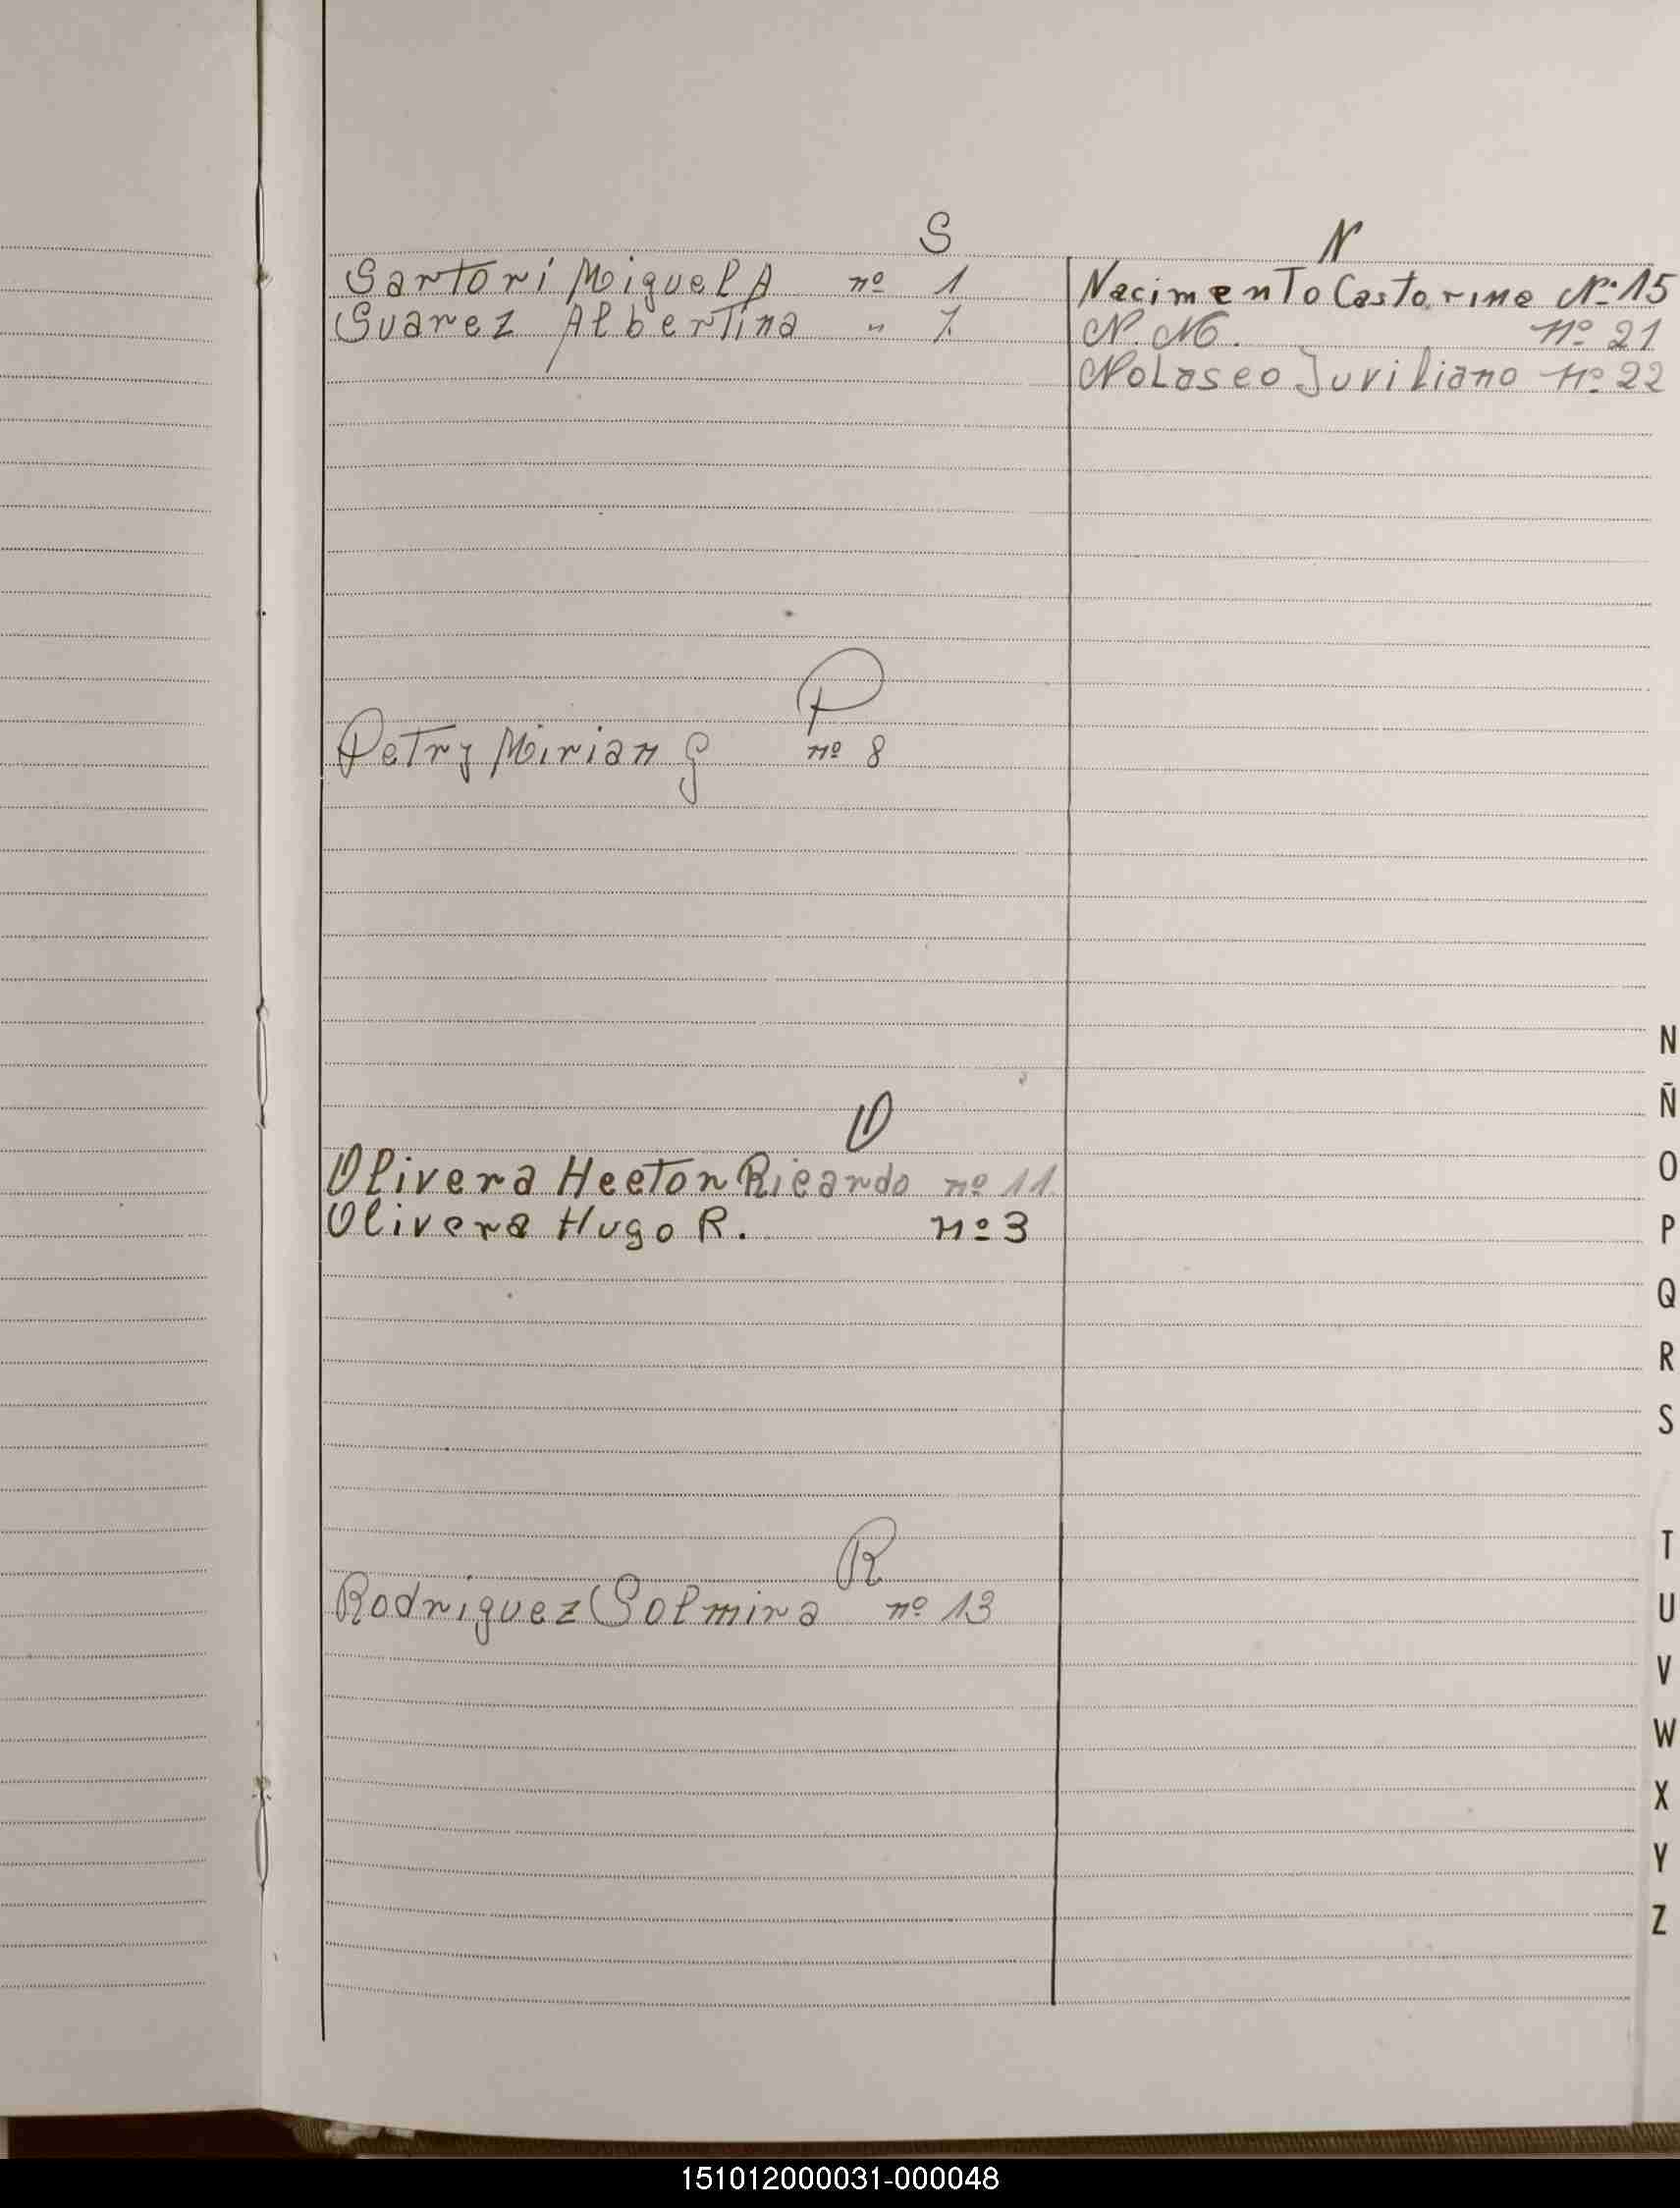 S
Sartori Miguel A nº 1
Suarez Albertina " 7.
P
Petry Mirian G nº 8
O
Olivera Hector Ricardo nº 11.
Olivera Hugo R. nº 3
R
Rodriguez Solmira nº 13
N
Nacimento Castorina Nº 15
N.N. nº 21
Nolasco Juviliano nº 22
N
Ñ
O
P
Q
R
S
T
U
V
W
X
Y
Z
151012000031-000048